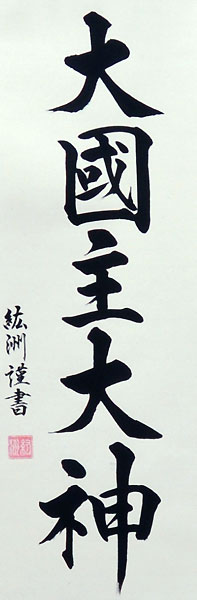 大國主大神
紘洲謹書